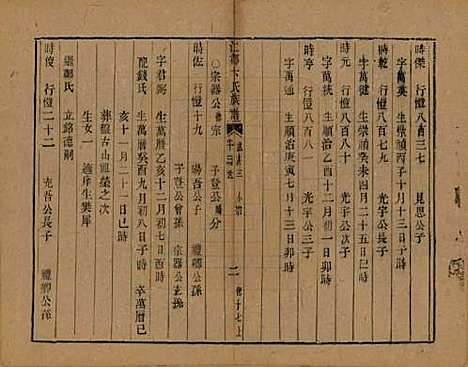 時傑 行億八百三七 見思公子
字萬英 生崇禎丙子十月十三日子時
時乾 行億八八一 光宇公長子
字萬健 生崇禎癸未四月二十五日巳時
時元 行億八八十 光宇公次子
字萬統 生順治乙酉十二月初一日卯時
時亨 行億八八一 光宇公三子
字萬通 生順治庚寅七月十三日卯時
江都卞氏族譜
二
◯宗器公 宗 子登公 分
時佐 行億十九 場吾公子 禮卿公孫
子登公曾孫 宗器公玄孫
字君弼 生萬曆乙亥十二月初七日酉時
配錢氏 生萬曆癸酉九月初八日子時 卒萬曆己
亥十一月二十一日巳時
葬古山祖塋之次
生女一 適庠生樊犀
繼鄒氏 立銘德嗣
時俊 行億二十二 充吾公長子 禮卿公孫